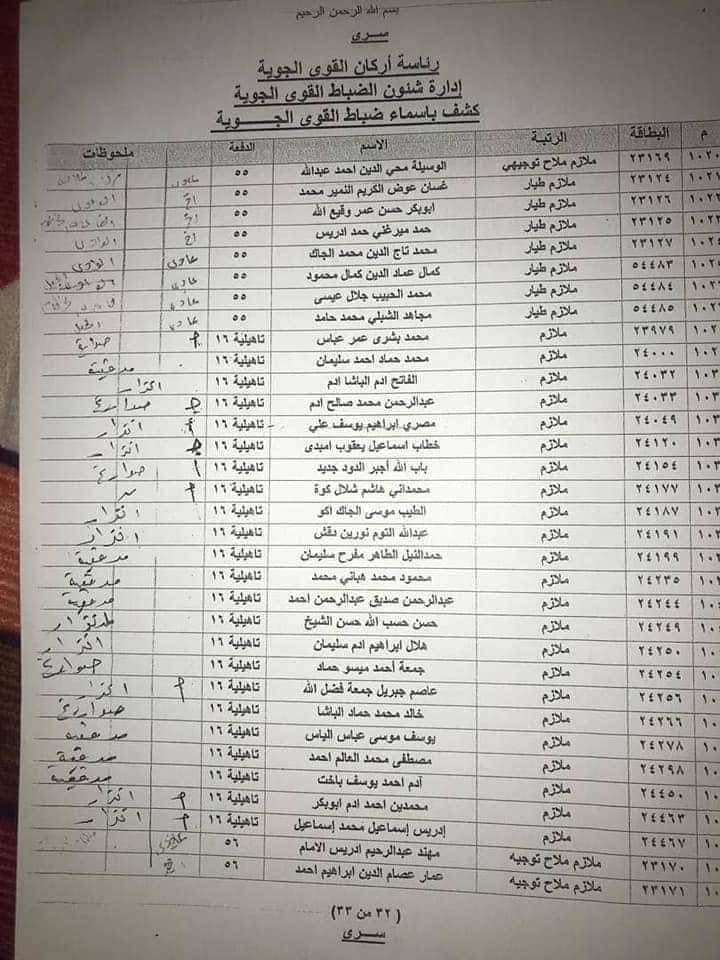 بسم الله الرحمن الرحيم
سـرى
رئاسة أركان القوى الجوية
إدارة شئون الضباط القوى الجوية
كشف باسماء ضباط القوى الجـــوية
م البطاقة الرتبة الإسم الدفعة ملحوظات
٢٣١٦٩ ملازم ملاح توجيهي الوسيلة محي الدين احمد عبدالله ٥٥
٢٣١٢٤ ملازم طيار غسان عوض الكريم النمير محمد ٥٥
٢٣١٢٦ ملازم طيار ابوبكر حسن عمر وقيع الله ٥٥
٢٣١٢٥ ملازم طيار حمد ميرغني حمد ادريس ٥٥
٢٣١٢٧ ملازم طيار محمد تاج الدين محمد الجاك ٥٥
٥٤٤٨٣ ملازم طيار كمال عماد الدين كمال محمود ٥٥
٥٤٤٨٤ ملازم طيار محمد الحبيب جلال عيسى ٥٥
٥٤٤٨٥ ملازم طيار مجاهد الشبلي محمد حامد ٥٥
٢٣٩٧٩ ملازم محمد بشرى عمر عباس تاهيلية ١٦
٢٤٠٠٠ ملازم محمد حماد احمد سليمان تاهيلية ١٦ مدفعية
٢٤٠٣٢ ملازم الفاتح ادم الباشا ادم تاهيلية ١٦
٢٤٠٣٣ ملازم عبدالرحمن محمد صالح ادم تاهيلية ١٦ صواريخ
٢٤٠٤٩ ملازم مصري ابراهيم يوسف علي تاهيلية ١٦
٢٤١٢٠ ملازم خطاب اسماعيل يعقوب امبدى تاهيلية ١٦
٢٤١٥٤ ملازم باب الله أجبر الدود جديد تاهيلية ١٦ صواريخ
٢٤١٧٧ ملازم محمداني هاشم شلال كوة تاهيلية ١٦
٢٤١٨٧ ملازم الطيب موسى الجاك اكو تاهيلية ١٦
٢٤١٩١ ملازم عبدالله التوم نورين دقش تاهيلية ١٦
٢٤١٩٩ ملازم حمدالنيل الطاهر مفرح سليمان تاهيلية ١٦ مدفعية
٢٤٢٣٥ ملازم محمود محمد هباني محمد تاهيلية ١٦ مدفعية
٢٤٢٤٤ ملازم عبدالرحمن صديق عبدالرحمن احمد تاهيلية ١٦ مدفعية
٢٤٢٤٩ ملازم حسن حسب الله حسن الشيخ تاهيلية ١٦
٢٤٢٥٠ ملازم هلال ابراهيم ادم سليمان تاهيلية ١٦
٢٤٢٥٤ ملازم جمعة أحمد ميسو حماد تاهيلية ١٦ صواريخ
٢٤٢٥٦ ملازم عاصم جبريل جمعة فضل الله تاهيلية ١٦
٢٤٢٦٦ ملازم خالد محمد حماد الباشا تاهيلية ١٦ صواريخ
٢٤٢٧٨ ملازم يوسف موسى عباس الياس تاهيلية ١٦ مدفعية
٢٤٢٩٨ ملازم مصطفى محمد العالم احمد تاهيلية ١٦ مدفعية
٢٤٤٥٠ ملازم آدم احمد يوسف باخت تاهيلية ١٦ مدفعية
٢٤٤٦٣ ملازم محمدين احمد ادم ابوبكر تاهيلية ١٦
٢٤٤٦٧ ملازم إدريس إسماعيل محمد إسماعيل تاهيلية ١٦
٢٣١٧٠ ملازم ملاح توجيه مهند عبدالرحيم ادريس الامام ٥٦
٢٣١٧١ ملازم ملاح توجيه عمار عصام الدين ابراهيم احمد ٥٦
( ٣٢ من ٣٣)
سـرى